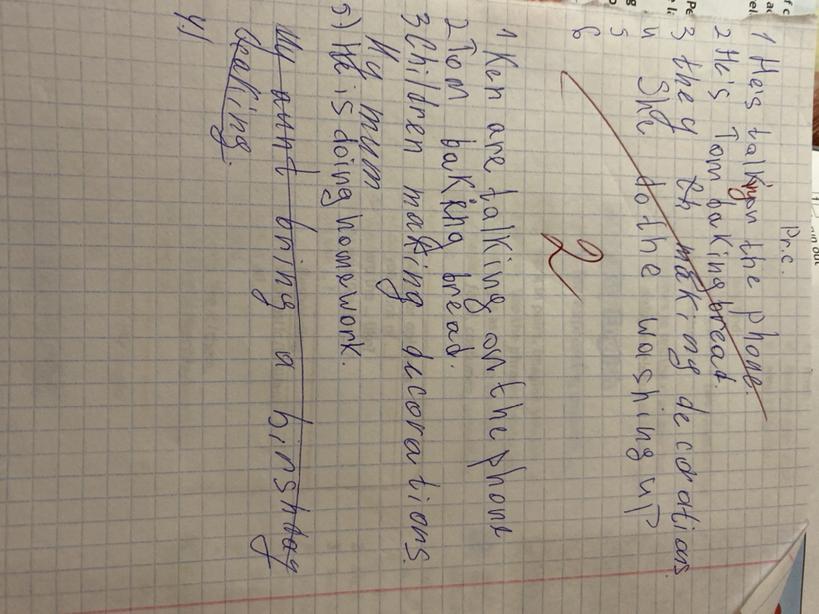 Pr.c.
1 He's talkingon the phone.
2 He's Tom baking bread.
3 they making decorations
4 She do the washing up
5
6
2
1 Ken are talking on the phone
2 Tom baking bread.
3 Children making decorations.
My mum
5) He is doing homework.
My aunt bring a birshday
4)